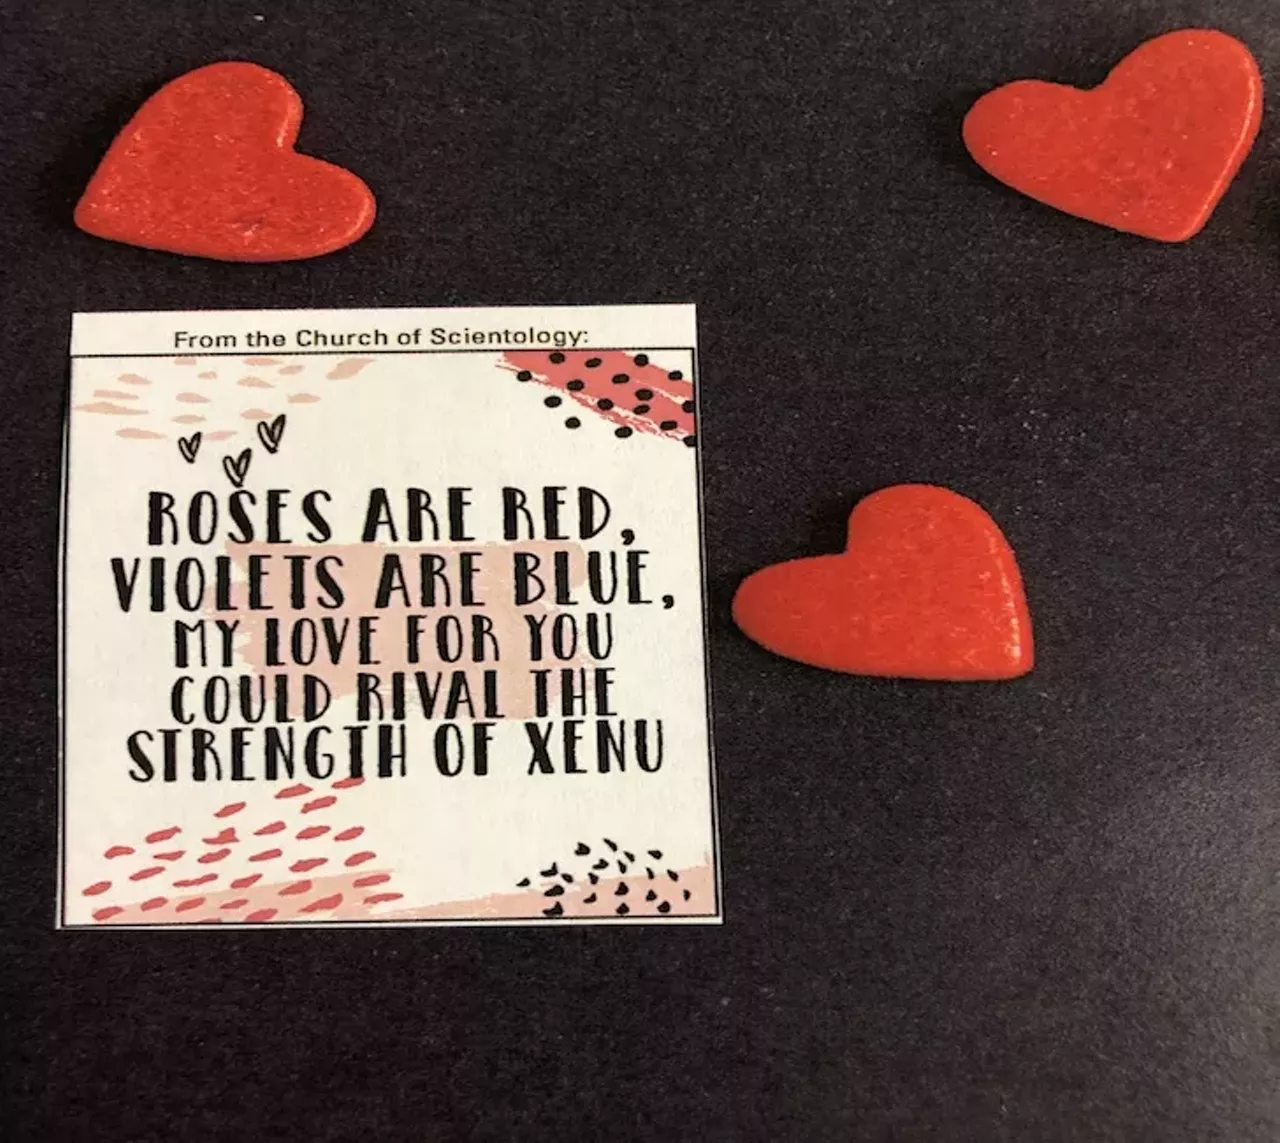 From the Church of Scientology:
ROSES ARE RED,
VIOLETS ARE BLUE,
MY LOVE FOR YOU
COULD RIVAL THE
STRENGTH OF XENU